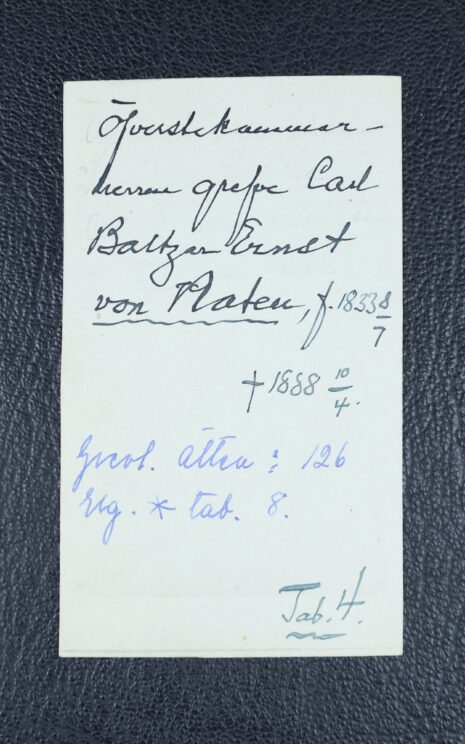 Öfverstekammar-
herren grefve Carl
Baltzar Ernst
von Platen, f. 1833 8/7
† 1888 10/4.
Grevl. ätten : 126
Elg. * tab. 8.
Tab. 4.